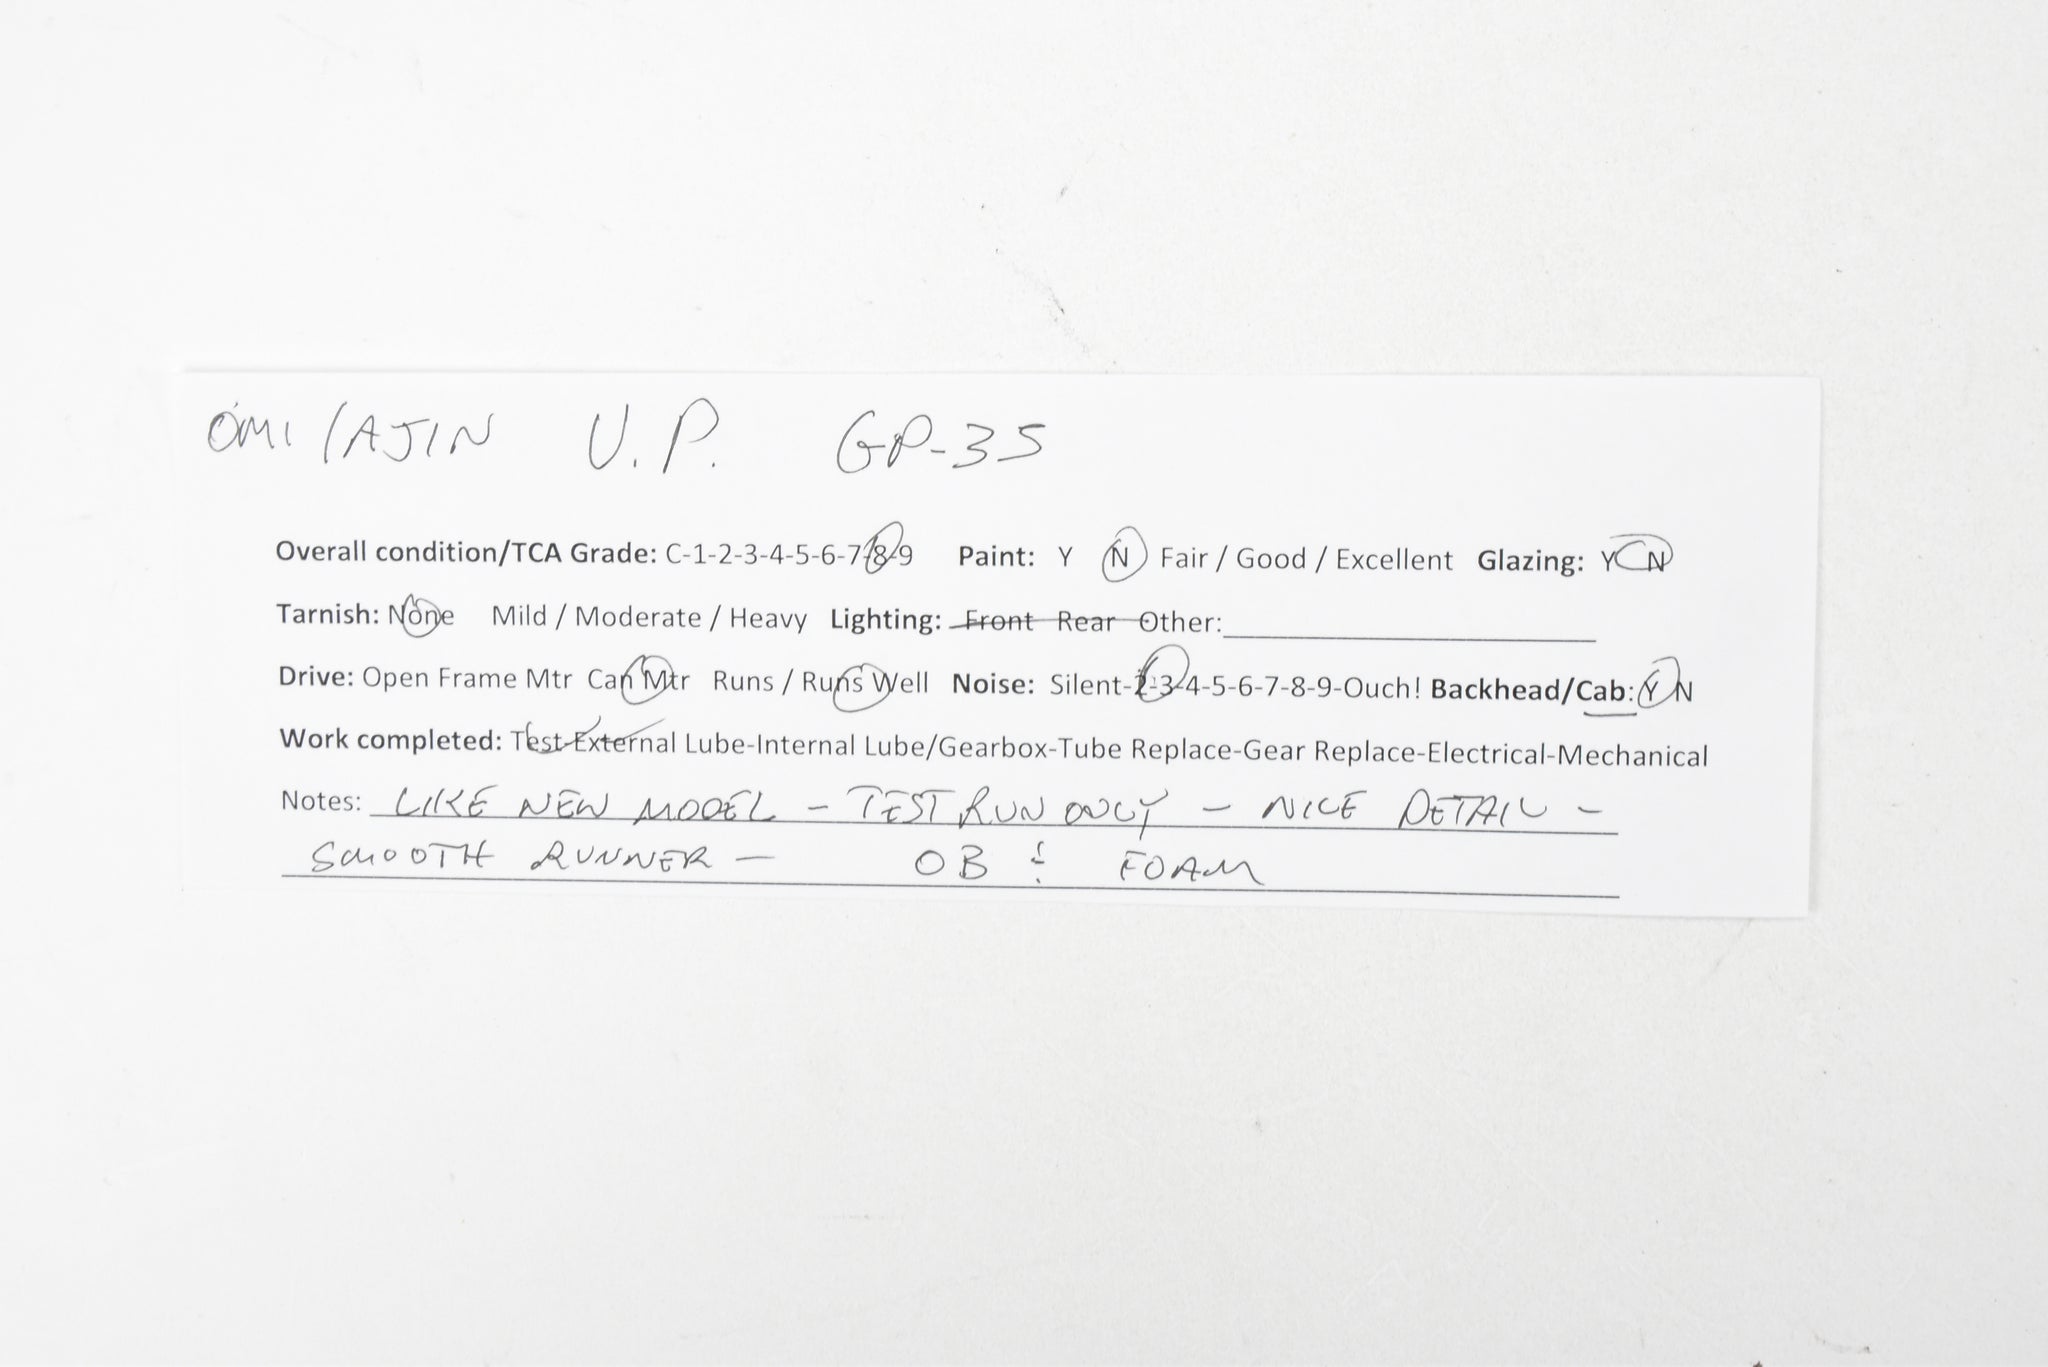 OMI/AJIN U.P. GP-35
Overall condition/TCA Grade: C-1-2-3-4-5-6-7-8-9 Paint: Y N Fair / Good / Excellent Glazing: Y N
Tarnish: None Mild / Moderate / Heavy Lighting: Front Rear Other:
Drive: Open Frame Mtr Can Mtr Runs / Runs Well Noise: Silent-2-3-4-5-6-7-8-9-Ouch! Backhead/Cab: Y N
Work completed: Test-External Lube-Internal Lube/Gearbox-Tube Replace-Gear Replace-Electrical-Mechanical
Notes: LIKE NEW MODEL - TEST RUN ONLY - NICE DETAIL -
SMOOTH RUNNER - OB & FOAM